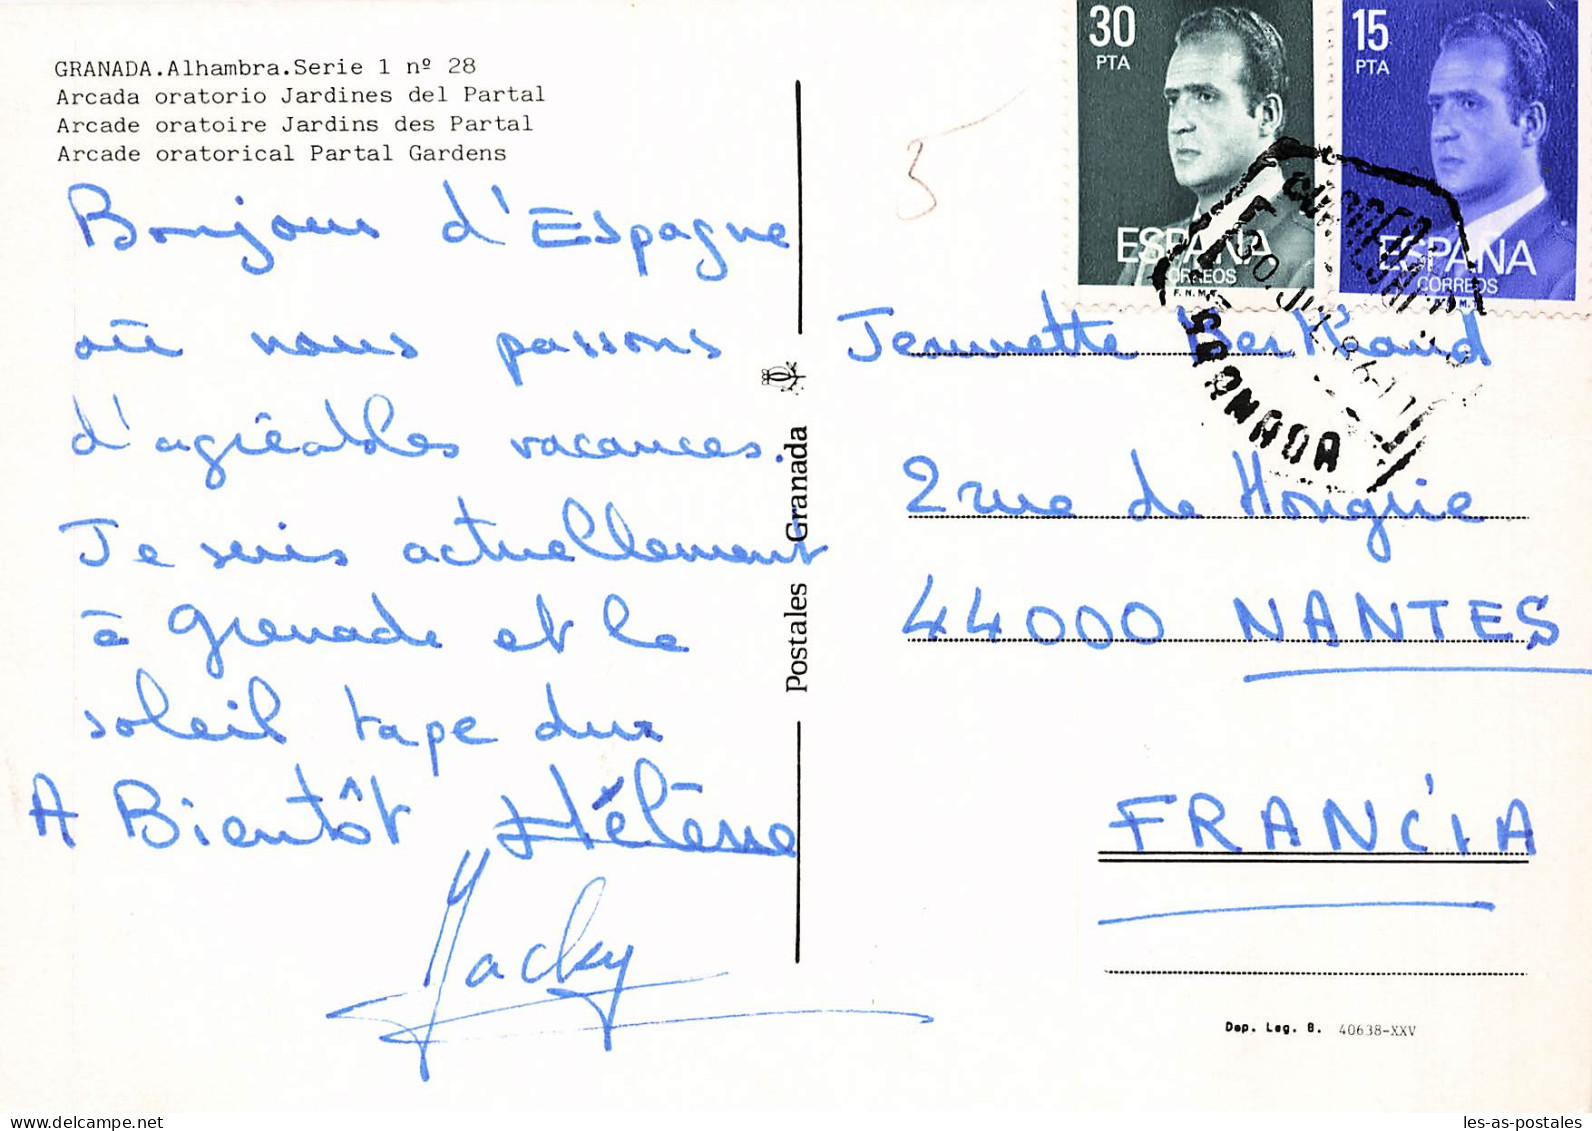 GRANADA.Alhambra.Serie 1 nº 28
Arcada oratorio Jardines del Partal
Arcade oratoire Jardins des Partal
Arcade oratorical Partal Gardens
Bonjour d'Espagne
où nous passons
d'agréables vacances.
Je suis actuellement
à Grenade et le
soleil tape dur
A Bientôt Hélène
Jacky
Postales Granada
5
30
PTA
ESPAÑA
CORREOS
F.N.M.T.
15
PTA
ESPAÑA
CORREOS
GRANADA
Jeannette Bertheaud
2 rue de Hongrie
44000 NANTES
FRANCIA
Dep. Leg. B. 40638-XXV
les-as-postales